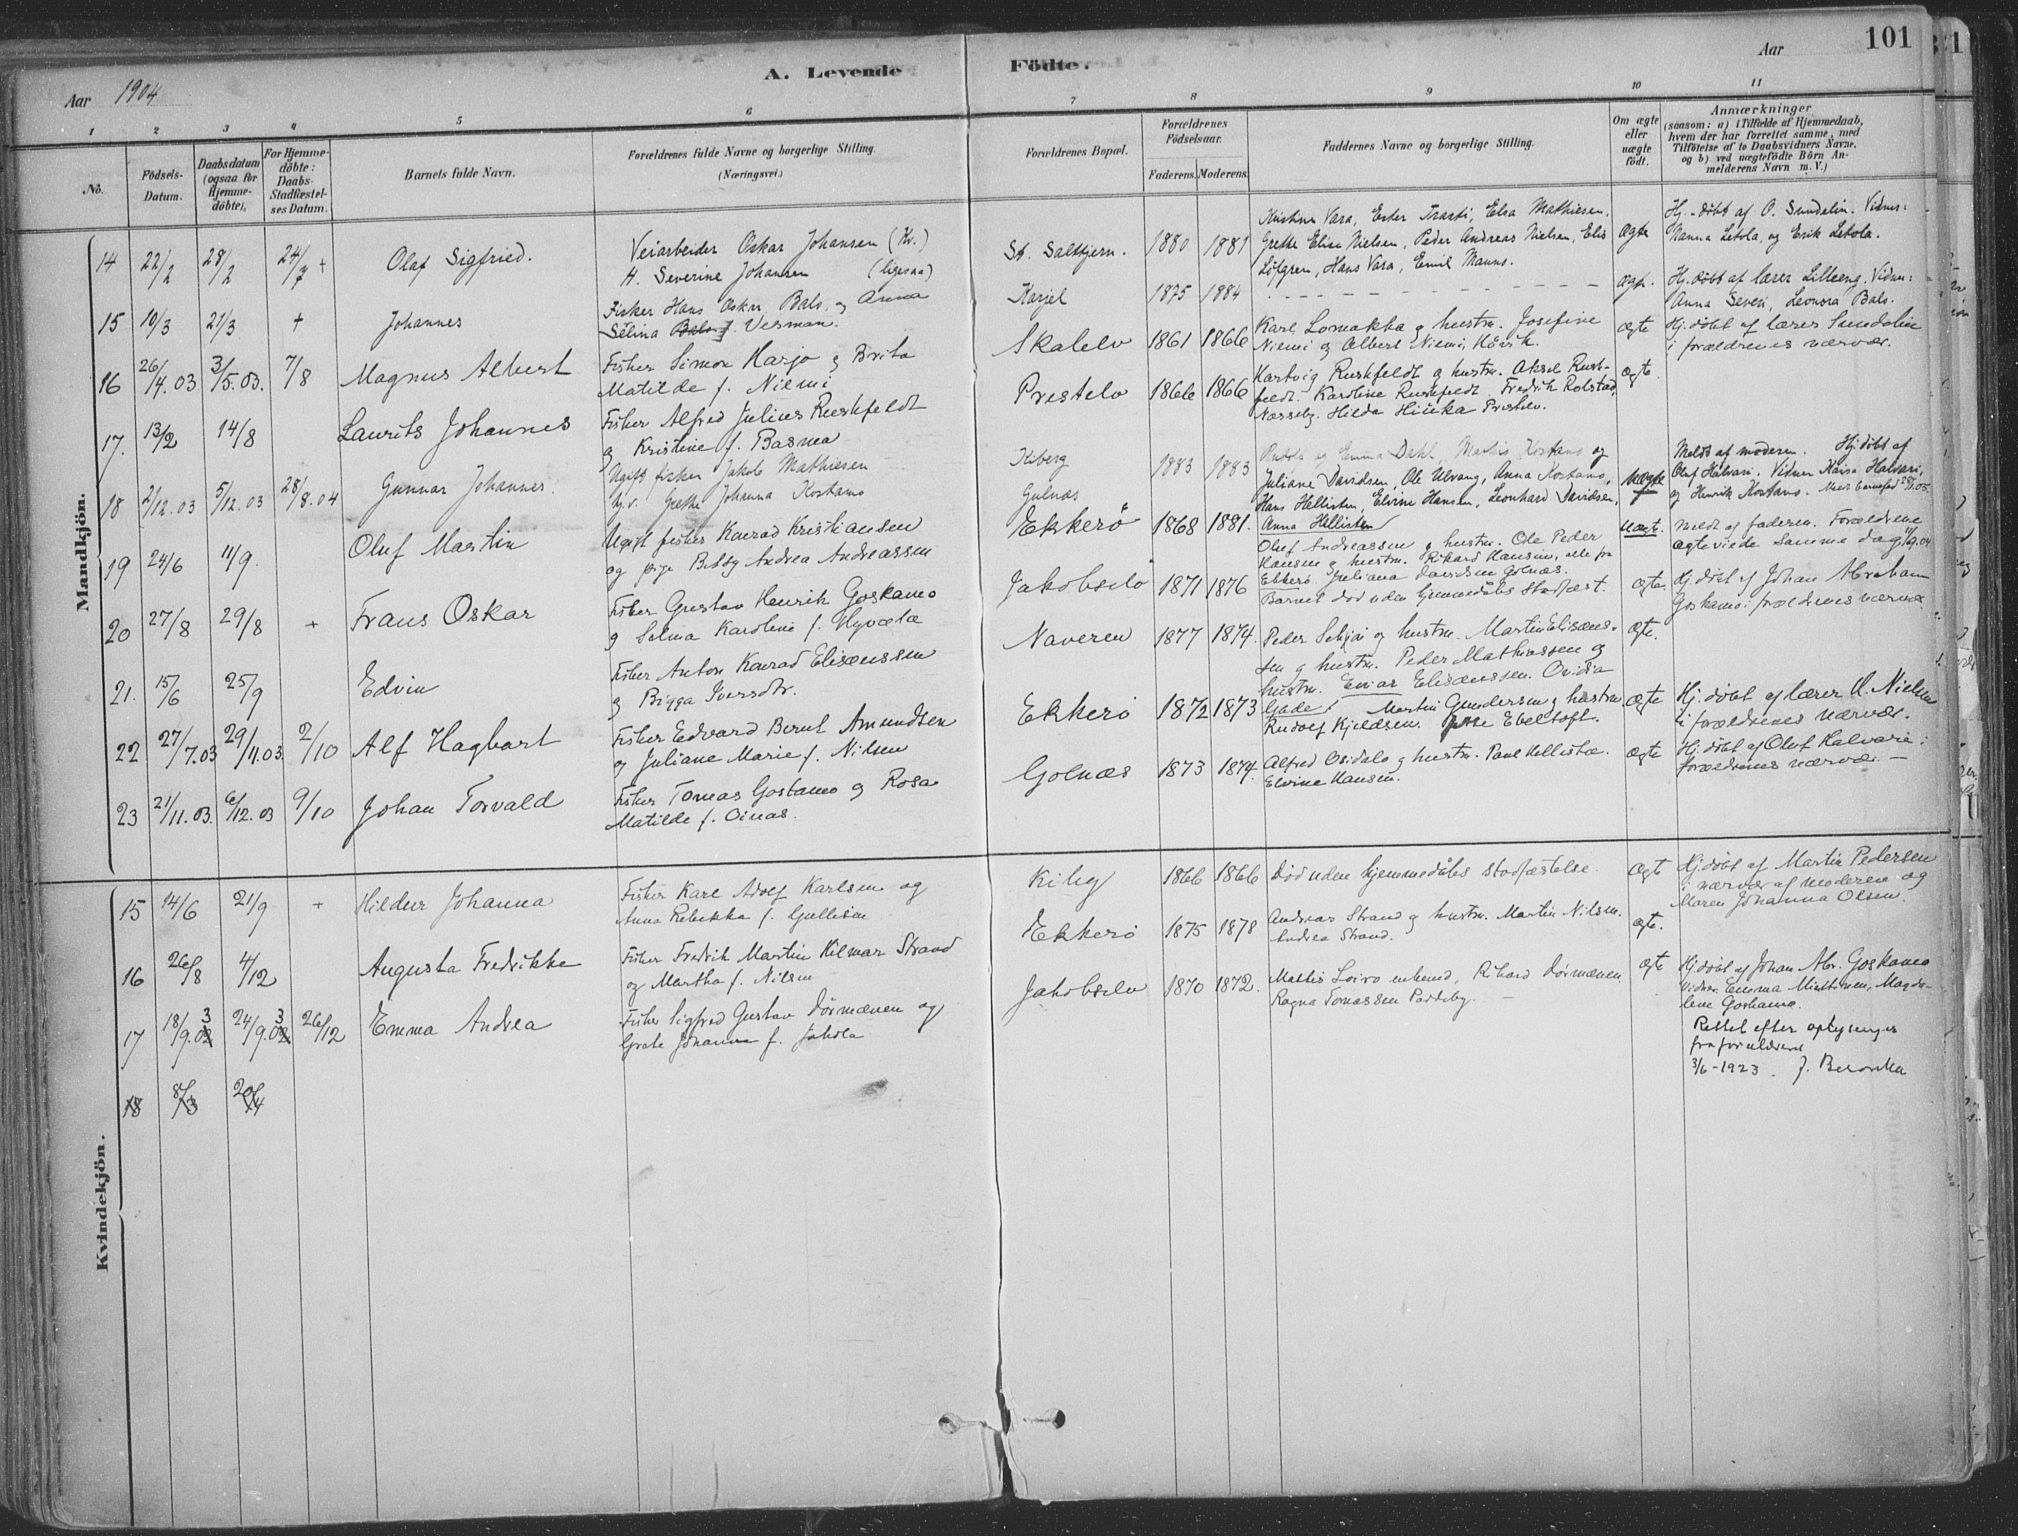 101
Aar 1904
A. Levende Födte.
Aar
1 2 3 4 5 6 7 8 9 10 11
No.
Födsels-Datum.
Daabsdatum (ogsaa for Hjemme-döbte).
For Hjemme-döbte: Daabs-Stadfæstel-ses Datum.
Barnets fulde Navn.
Forældrenes fulde Navne og borgerlige Stilling.
(Næringsvei.)
Forældrenes Bopæl.
Forældrenes Födselsaar.
Faderens. Moderens.
Faddernes Navne og borgerlige Stilling.
Om ægte eller uægte födt.
Anmærkninger
(saasom: a) i Tilfælde af Hjemmedaab,
hvem der har forrettet samme, med
Tilföielse af to Daabsvidners Navne,
og b) ved uægtefödte Börn An-
melderens Navn m. V.)
Mandkjön.
14 22/2 28/2 24/7 + Olaf Sigfried.
Veiarbeider Oskar Johansen (Kv.)
H. Severine Johansen (ligesaa)
St. Salttjern. 1880 1881
Kristine Vara, Ester Trasti, Elsa Mathiesen,
Grethe Elise Nielsen, Peder Andreas Nielsen, Elis
Löfgren, Hans Vara, Emil Manns.
Ægte
Hj.-döbt af O. Sundelin. Vidner:
Nanna Letola, og Erik Letola.
15 10/3 21/3 + Johannes
Fisker Hans Oskar Bals, og Anna
Selina Bals f. Vesman.
Karjel 1875 1884
Ægt.
Hj. döbt af lærer Lilleeng. Vidner:
Anna Severi, Leonora Bals.
16 26/4.03 3/5.03. 7/8 Magnus Albert
Fisker Simon Harjo og Brita
Matilde f. Niemi
Skalelv 1861 1866
Karl Lomakka og hustr. Josefine
Niemi og Albert Niemi,
Ægte
Hj. döbt af lærer Sundelin
i forældrenes nærvær.
17. 13/2 14/8 Laurits Johannes
Fisker Alfred Julius Ruskfeldt
og Kristine f. Basma
Prestelv 1866 1866
Hartvig Ruskfeldt og hustr. Aksel Rusk-
feldt. Karoline Ruskfeldt. Fredrik Rolstad,
Næsseby. Hilda Hiuka Prestelv.
Ægte.
18 2/12.03 5/12.03 28/8.04 Gunnar Johannes.
Ugift fisker Jakob Mathiesen
og Grethe Johanna Kostamo
Kiberg
Golnæs 1883 1883
Emma Dahl, Mathis Kostamo og
Juliane Davidsen, Ole Ulvang, Anna Kostamo,
Hans Hellisten, Elvine Hansen, Leonhard Davidsen,
Anna Hellisten
Uægte
Meldt af moderen. Hj. döbt af
Olaf Halvari. Vidner Kaisa Halvari,
og Henrik Kostamo.
19 24/6 11/9. Oluf Martin
Ugift fisker Konrad Kristiansen
og pige Betsy Andrea Andreassen
Ekkerö 1868 1881.
Oluf Andreassen og hustr. Ole Peder
Hansen og hustr. Rikard Hansen, alle fra
Ekkerö. Juliana Davidsen Golnæs.
Uægt.
Meldt af faderen. Forældrene
ægteviede samme dag 11/9.04
20 27/8 29/8 + Frans Oskar
Fisker Gustav Henrik Goskamo
og Selma Karoline f. Hyvelæ
Jakobselv 1871 1876
Barnet död uden hjemmedaabs stadfæst.
Ægte.
Hj. döbt af Johan Abraham
Goskamo i forældrenes nærvær
21. 15/6 25/9 Edvin
Fisker Anton Konrad Elisæussen
og Brigga Iversdtr.
Naveren 1877 1874.
Peder og hustr. Martin Elisæus-
sen og hustr. Peder Mathiassen og
hustr. Einar Elisæussen. Ovidia
Gade
Ægte.
22 27/7.03 29/11.03. 2/10 Alf Hagbart
Fisker Edvard Bernt Amundsen
og Juliane Marie f. Nilsen
Ekkerö 1872 1873
Martin Gundersen og hustru
Rudolf Kjeldsen. Ebeltoft.
Ægte
Hj. döbt af lærer U. Nielsen
i forældrenes nærvær.
23 21/11.03. 6/12.03 9/10 Johan Torvald
Fisker Tomas Gostamo og Rosa
Matilde f. Oinas.
Golnæs 1873 1874.
Alfred og hustr. Paul Hellistæ.
Elvine Hansen.
Ægte
Hj. döbt af Oluf Halvari i
forældrenes nærvær. —
Kvindekjön.
15 14/6 21/9 + Hildur Johanna
Fisker Karl Adolf Karlsen og
Anna Rebekka f. Gullisen
Kiby 1866 1866
Död uden hjemmedåbs stadfæstelse.
Ægt
Hj. döbt af Martin Pedersen
i nærvær af moderen og
Maren Johanna Olsen.
16 26/8 4/12 Augusta Fredrikke
Fisker Fredrik Martin Hilmar Strand
og Martha f. Nilsen
Ekkerö 1875 1878
Andreas Strand og hustr. Martin Nilsen.
Andrea Strand.
Ægte.
17 18/9.03 24/9.03 26/12 Emma Andrea
Fisker Sigfred Gustav Dörmænen og
Grete Johanna f. Jakola
Jakobselv 1870 1872.
Mathis Loiro enkemd, Rikard Dörmænen
Ragna Tomassen Paddeby. —
Ægte
Hj. döbt af Johan Abr. Goskamo
Vidner Emma Miettinen, Magda-
lene Goskamo.
Rettet efter oplysninger
fra forældrene
3/6-1923.
18 8/3 20/4